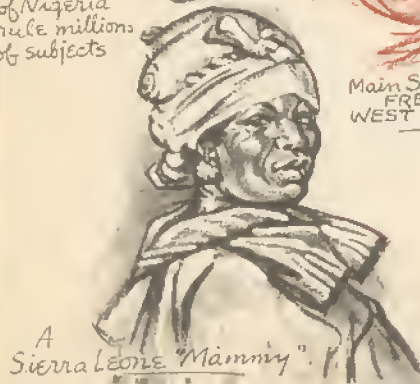 of Nigeria
rule millions
of subjects
Main S
FRE
WEST
A
Sierra Leone "Mammy".